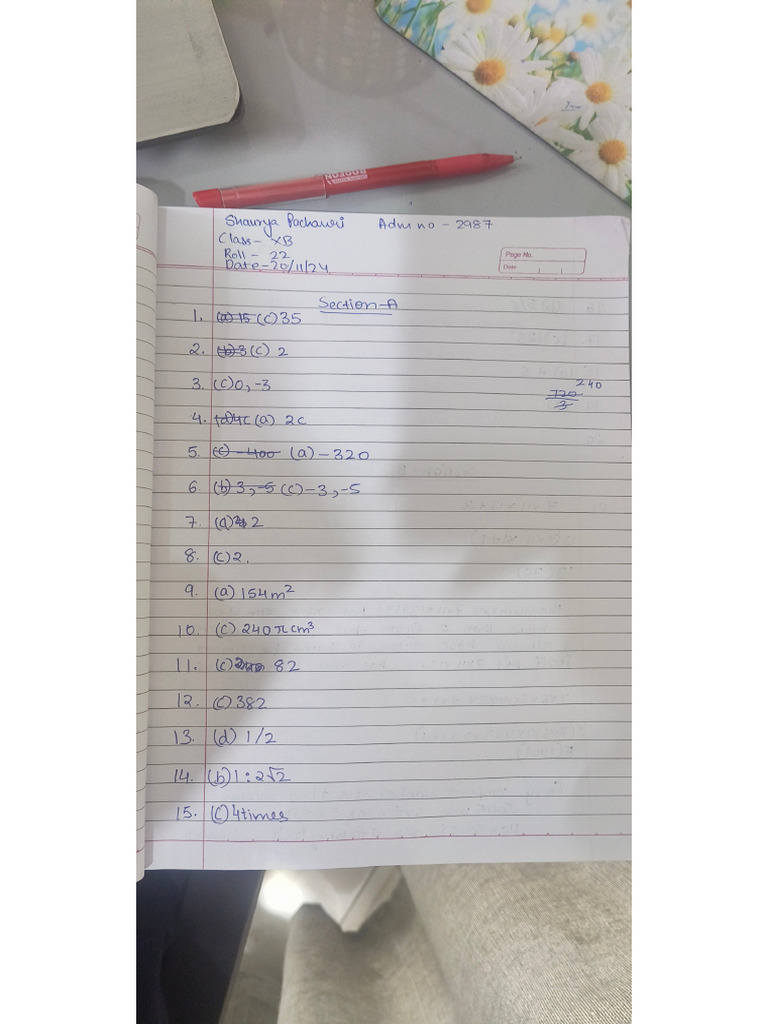 Shaurya Pachauri Adm no - 2987
Class - XB
Roll - 22
Date - 20/11/24
Page No.
Date
Section-A
1. (a) 15 (c) 35
2. (b) 3 (c) 2
3. (c) 0, -3
240
720
3
4. (d) 4c (a) 2c
5. (c) -400 (a) -320
6. (b) 3, -5 (c) -3, -5
7. (d) 2
8. (c) 2.
9. (a) 154 m²
10. (c) 240 π cm³
11. (c) 82
12. (c) 382
13. (d) 1/2
14. (b) 1 : 2√2
15. (c) 4 times